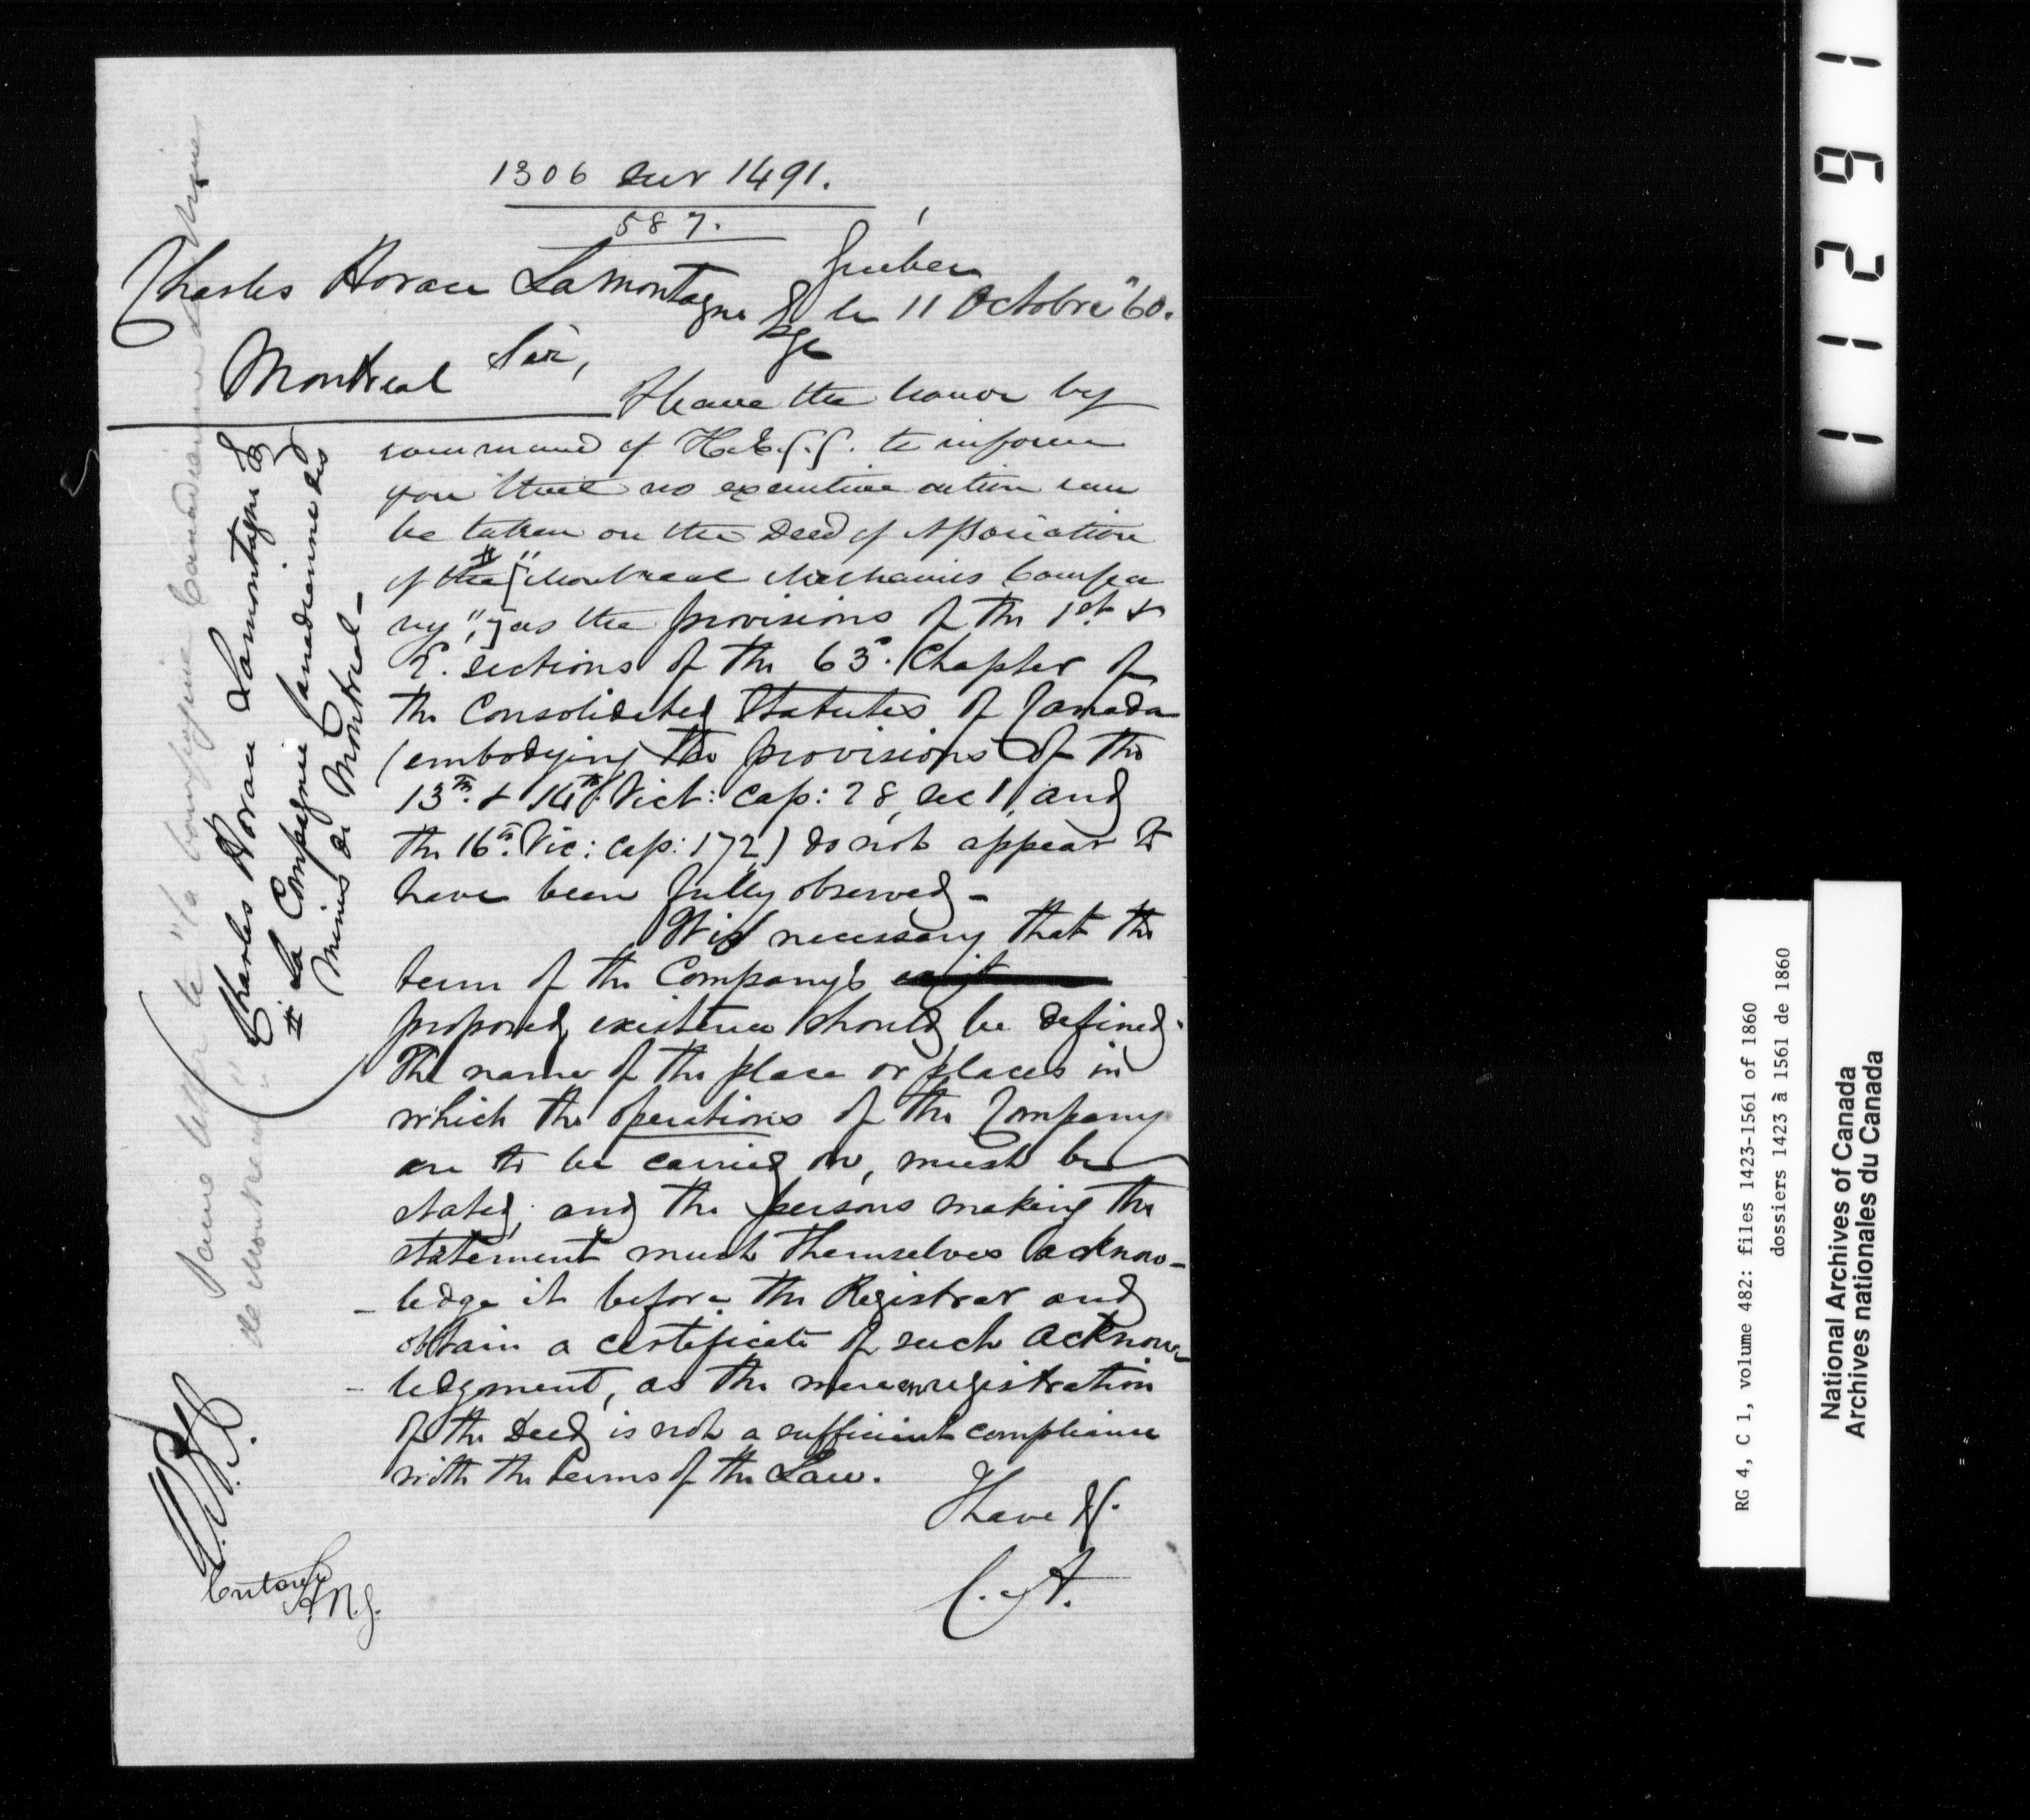 1306 sur 1491.
587.
Québec
le 11 Octobre "60.
Charles Horace Lamontagne Esqr
Montreal
Sir,
I have the honor by
command of H. E. G. G. to inform
you that no executive action can
be taken on the Deed of Association
of the # ["Montreal Mechanics Compa
ny",] as the provisions of the 1st. &
2. sections of the 63d. Chapter of
the Consolidated Statutes of Canada
(embodying the provisions of the
13th. & 14th. Vict: cap: 28, sec 1, and
the 16th. Vic: cap: 172) do not appear to
have been fully observed -
It is necessary that the
term of the Company's
proposed existence should be defined.
The name of the place or places in
which the operations of the Company
are to be carried on, must be
stated; and the persons making the
statement must themselves acknow-
- ledge it before the Registrar and
obtain a certificate of such acknow-
- ledgment, as the mere enregistration
of the Deed is not a sufficient compliance
with the terms of the Law.
I have &c.
C. A.
Charles Horace Lamontagne
# La Compagnie Canadienne des
Mines de Montreal -
Same letter to "la Compagnie Canadienne des Mines
de Montreal"
11291
RG 4, C 1, volume 482: files 1423-1561 of 1860
dossiers 1423 à 1561 de 1860
National Archives of Canada
Archives nationales du Canada